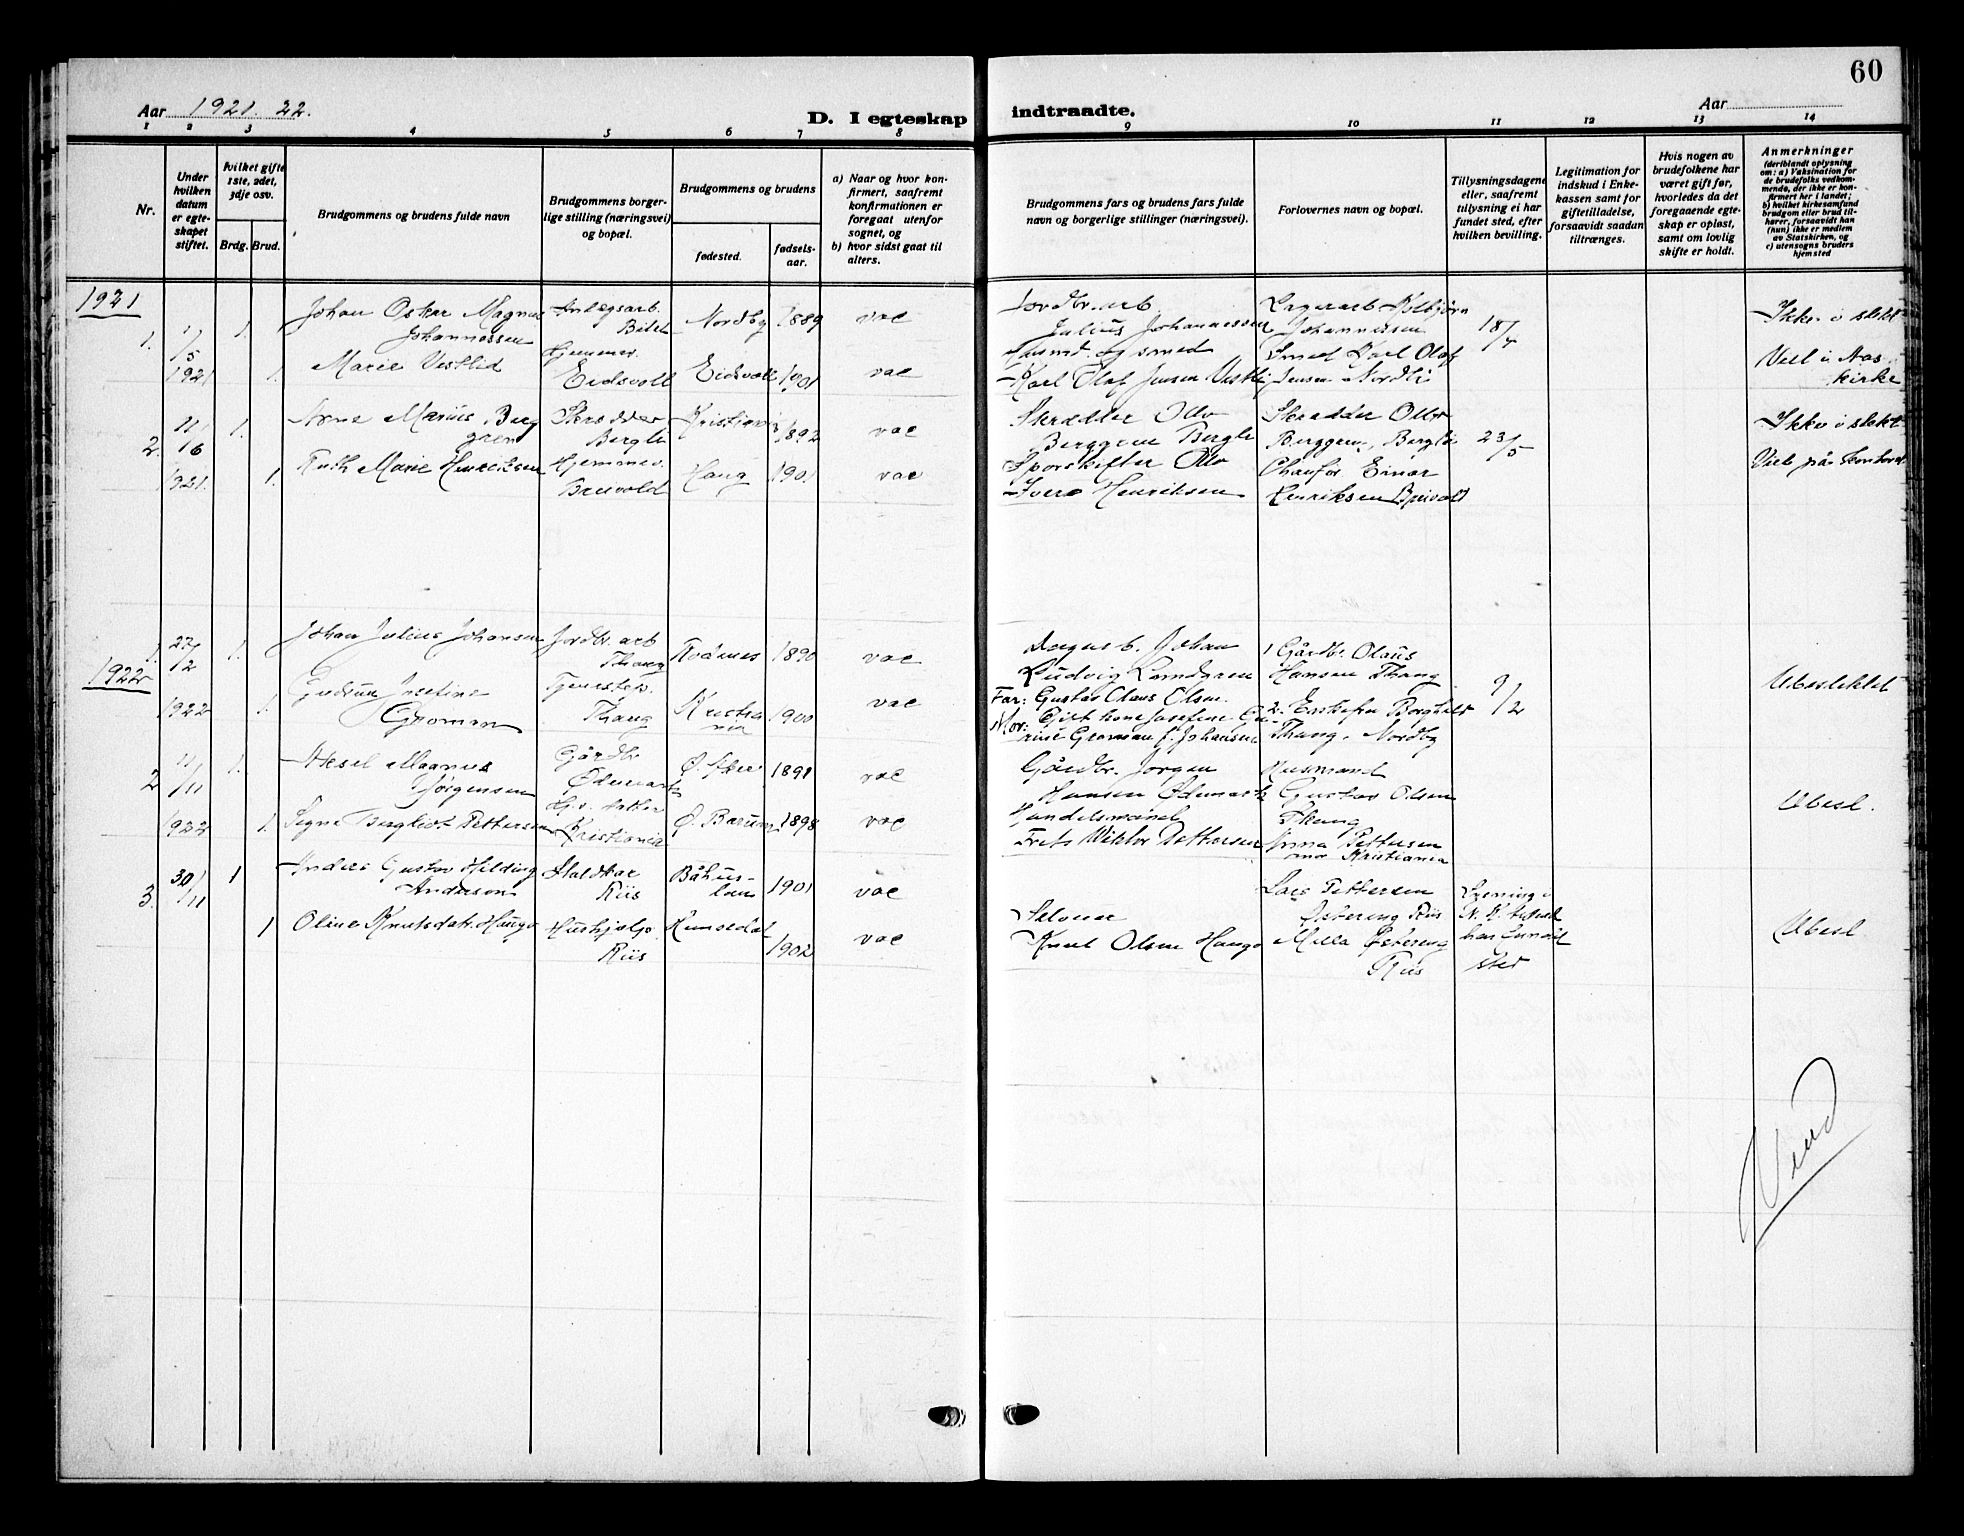 60
Aar 1921. 22.
D. I egteskap indtraadte.
Aar
1 2 3 4 5 6 7 8 9 10 11 12 13 14
Nr.
Under
hvilken
datum
er egte-
skapet
stiftet.
hvilket gifte
1ste, 2det,
3dje osv.
Brdg. Brud.
Brudgommens og brudens fulde navn
Brudgommens borger-
lige stilling (næringsvei)
og bopæl.
Brudgommens og brudens
fødested.
fødsels-
aar.
a) Naar og hvor kon-
firmert, saafremt
konfirmationen er
foregaat utenfor
sognet, og
b) hvor sidst gaat til
alters.
Brudgommens fars og brudens fars fulde
navn og borgerlige stillinger (næringsvei).
Forlovernes navn og bopæl.
Tillysningsdagene
eller, saafremt
tillysning ei har
fundet sted, efter
hvilken bevilling.
Legitimation for
indskud i Enke-
kassen samt for
giftetilladelse,
forsaavidt saadan
tiltrænges.
Hvis nogen av
brudefolkene har
været gift før,
hvorledes da det
foregaaende egte-
skap er opløst,
samt om lovlig
skifte er holdt.
Anmerkninger
(deriblandt oplysning
om: a) Vaksination for
de brudefolks vedkom-
mende, der ikke er kon-
firmert her i landet;
b) hvilket kirkesamfund
brudgom eller brud til-
hører, forsaavidt han
(hun) ikke er medlem
av Statskirken, og
c) utensogns bruders
hjemsted
1921
1. 1/5 1921
1.
Johan Oskar Magnus
Johannessen
Anlegsarb.
Bilet
Nordby 1889 vac
Jordbr. arb
Julius Johannessen
Lagerarb Kolbjørn
Johannessen
18/4
Ikke i slekt
1.
Marie Vestlid
Hjemmev.
Eidsvoll
Eidsvoll 1901 vac
Husmd. og smed
Karl Olaf Jensen Vestli
Smed Karl Olaf
Jensen Nordli
Viet i Aas
kirke
2. 11/16 1921.
1.
Arne Marius Berg
gren
Skrædder
Bergli
Kristiania 1892 vac
Skrædder Otto
Berggren Bergli
Skrædder Otto
Berggren, Bergli
23/5
Ikke i slekt
1.
Ruth Marie Henriksen
Hjemmev.
Breivold
Haug 1901 vac
Sporskifter Otto
Ivero Henriksen
Chaufør Einar
Henriksen Breivold
Viet på kontoret
1922
1. 27/2 1922
1.
Johan Julius Johansen
Jordbr. arb
Thaug
Rødenes 1890 vac
Dagarb. Johan
Ludvig Lundgren
1 Gårdbr. Olaus
Hansen Thaug
9/2
Ubeslektet
1.
Gudrun Josefine
Groman
Tjenestep.
Thaug
Kristia
nia
1900 vac
Far: Gustav Claus Olsen.
Mor: Gift kone Josefine Ca-
rine Groman f. Johansen
2. Enkefru Borghild
Thaug, Nordby
2 11/11 1922
1.
Aksel Magnus
Jørgensen
Gårdbr
Ødemark
1891 vac
Gårdbr. Jørgen
Hansen Ødemark
Husmand
Gustav Olsen
Thaug
Ubesl.
1.
Signe Bergliot Pettersen
Kristiania
Ø. Bærum 1898 vac
Handelsmand
Frits Viktor Pettersen
Anna Pettersen
mor Kristiania
3. 30/11
1
Anders Gustav Hilding
Anderson
Staldkar
Riis
Båhus-
len
1901 vac
Lars Pettersen
Østereng Riis
Lysning i
har fundet
sted
Ubesl.
1
Oline Knutsdatr. Haugo
Hushjelp
Riis
Hemsedal
1902
vac
Selveier
Knut Olsen Haugo
Milla Østereng
Riis
Vend